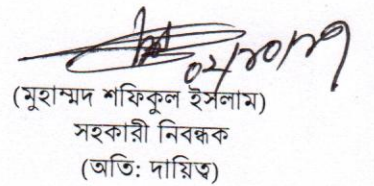 ০২/১০/১৭
(মুহাম্মদ শফিকুল ইসলাম)
সহকারী নিবন্ধক
(অতি: দায়িত্ব)